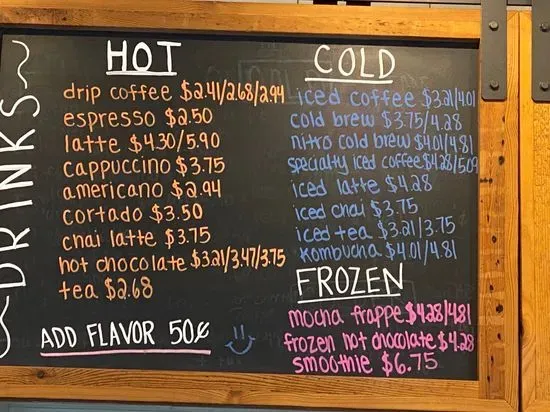 DRINKS
HOT
drip coffee $2.41/2.68/2.94
espresso $2.50
latte $4.30/5.90
cappuccino $3.75
americano $2.94
cortado $3.50
chai latte $3.75
hot chocolate $3.21/3.47/3.75
tea $2.68
ADD FLAVOR 50¢
COLD
iced coffee $3.21/4.01
cold brew $3.75/4.28
nitro cold brew $4.01/4.81
specialty iced coffee $4.28/5.09
iced latte $4.28
iced chai $3.75
iced tea $3.21/3.75
kombucha $4.01/4.81
FROZEN
mocha frappe $4.28/4.81
frozen hot chocolate $4.28
smoothie $6.75